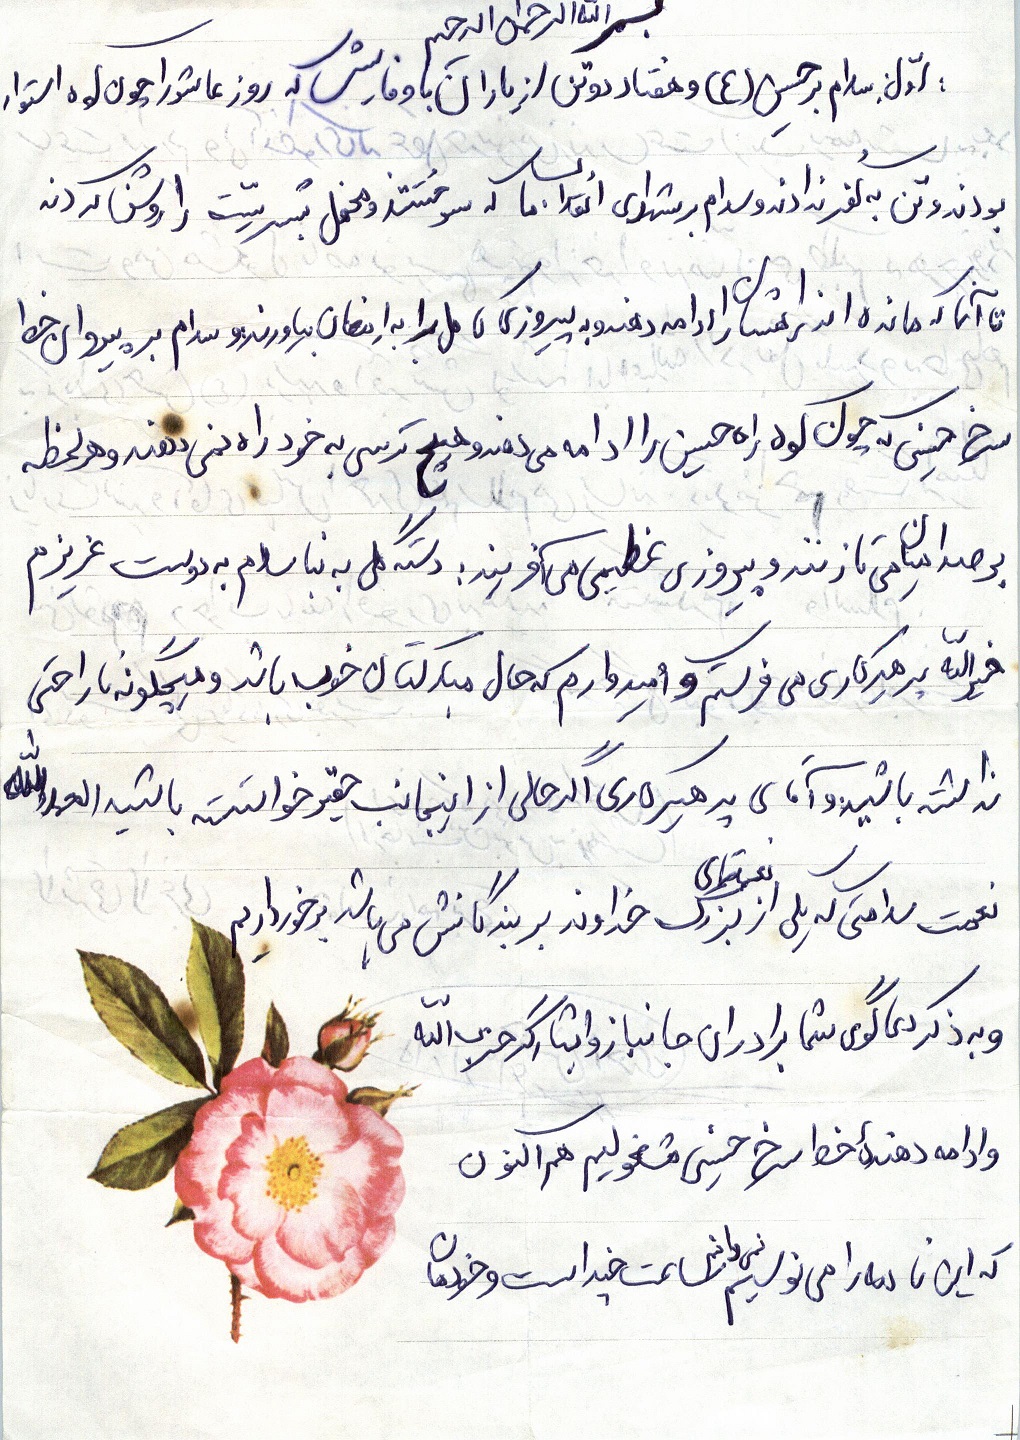 بسم الله الرحمن الرحیم
؛ اوّل سلام بر حسین (ع) و هفتاد دو تن از یاران باوفایش که روز عاشورا چون کوه استوار
بودند و تن به کفر ندادند و سلام بر شهدای ما که سوختند و محفل بشریّت را روشن کردند
تا آنها که مانده اند راهشان را ادامه دهند و به پیروزی کامل را به ارمغان بیاورند و سلام بر پیروان خط
سرخ حسینی که چون کوه راه حسین را ادامه می دهند و هیچ ترسی به خود راه نمی دهند و هر لحظه
بر صدامیان می تازنند و پیروزی عظیمی می آفرینند؛ دسته گل به نبا سلام به دوست عزیزم
خیرالله پرهیزکاری می فرستم و امیدوارم که حال مبارکتان خوب باشد و هیچگونه ناراحتی
نداشته باشید و آقای پرهیزکاری اگر حالی از اینجانب حقیر خواسته باشید الحمدالله
نعمت سلامتی که یکی از نعمتهای بزرگ خداوند بر بندگانش می باشد برخورداریم
و به ذکر دعاگوی شما برادرای جانباز و ایثارگر حزب الله
و ادامه دهندهٔ خط سرخ حسینی مشغولیم هم اکنون
که این نامه را می نویسیم نمی دانم ساعت چند است و خودمان